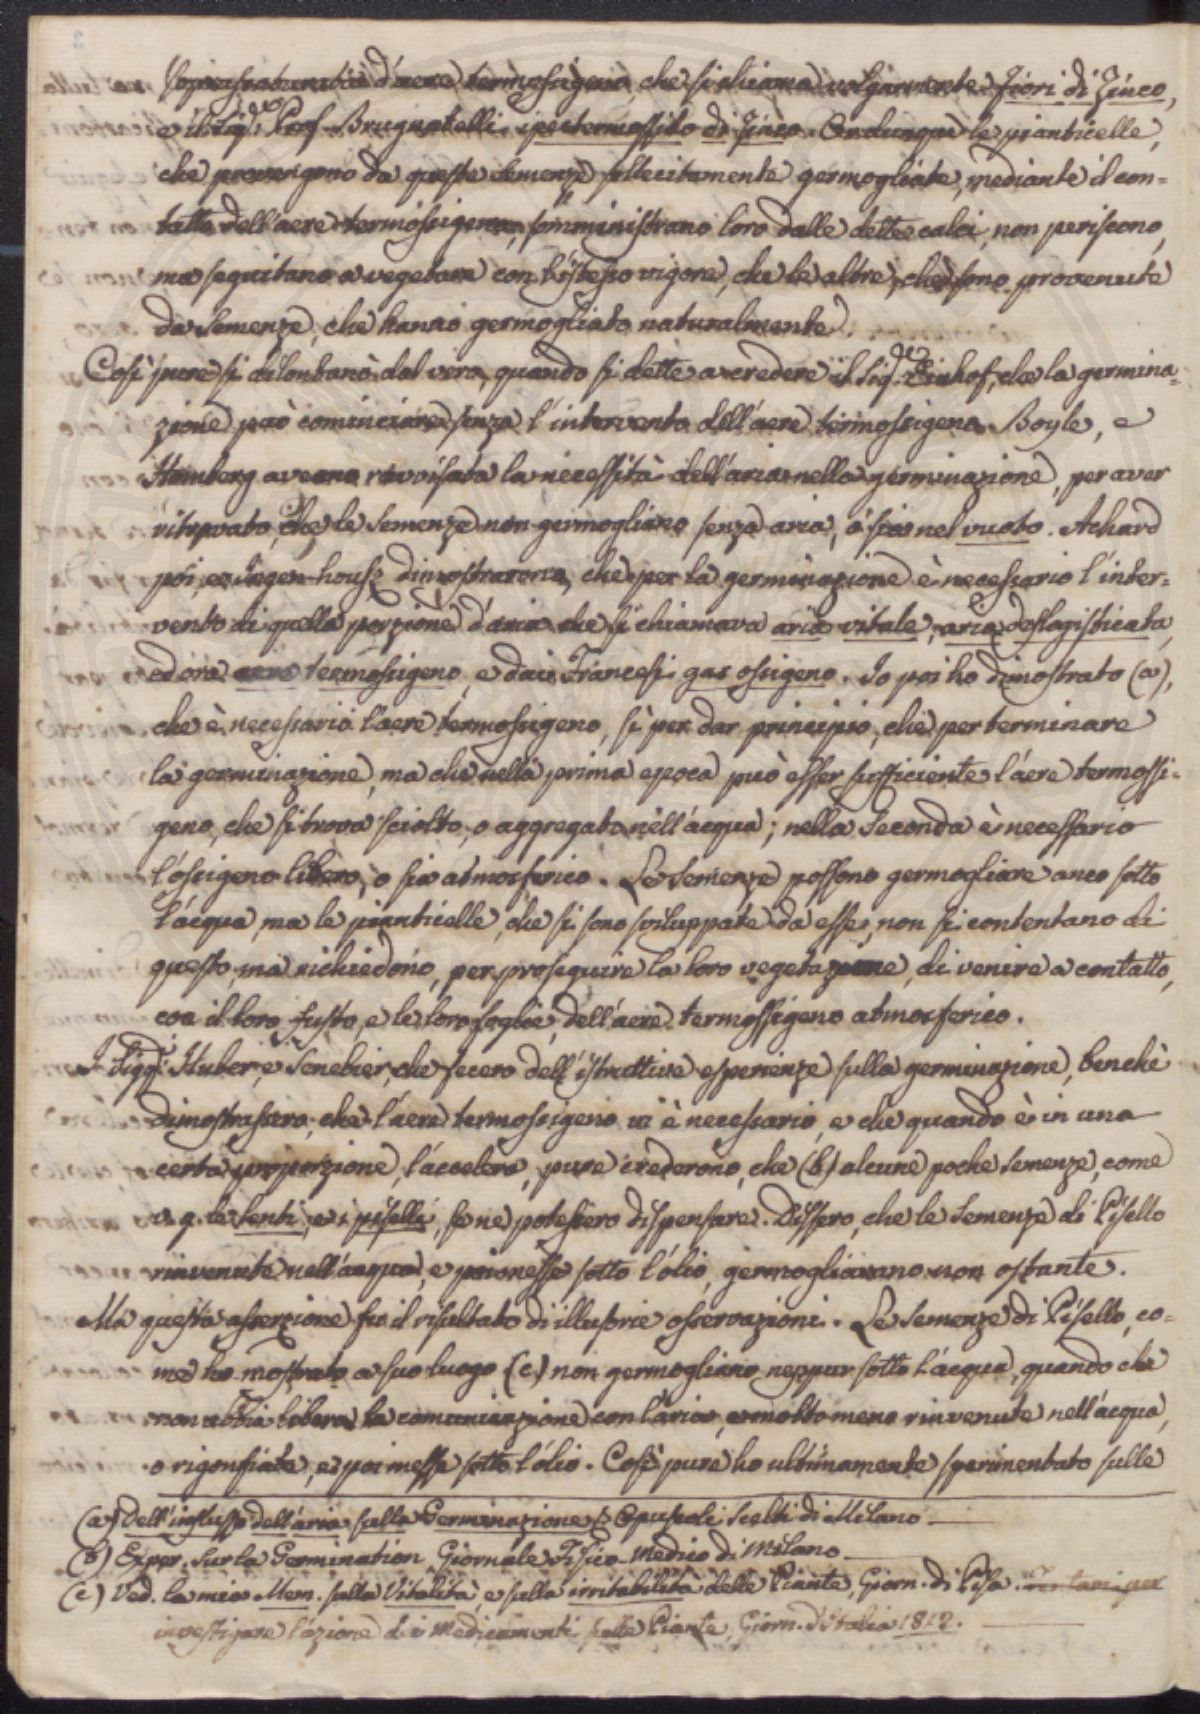 soprasaturati d'aere termossigeno, che si chiama volgarmente Fiori di Zinco,
e il Sig.r Prof. Brugnatelli, ipertermossido di Zinco. Ondunque le pianticelle,
che provengono da queste semenze sollecitamente germogliate, mediante il con=
tatto dell'aere termossigeno, somministrano loro dalle dette calci, non periscono,
ma seguitano a vegetare con l'istesso vigore, che le altre, che sono provenute
da semenze, che hanno germogliato naturalmente.
Così pure si allontanò dal vero, quando si dette a credere il Sig.re Einhof, che la germina=
zione può cominciare senza l'intervento dell'aere termossigeno. Boyle, e
Homberg aveano ravvisata la necessità dell'aria nella germinazione, per aver
ritrovato, che le semenze non germogliano senza aria, o sia nel vuoto. Achard
poi, ed Ingen-housz dimostrarono, che per la germinazione è necessario l'inter=
vento di quella porzione d'aria che si chiamava aria vitale, aria deflogisticata,
ed ora aere termossigeno, e dai Francesi gas ossigeno. Io poi ho dimostrato (a),
che è necessario l'aere termossigeno, sì per dar principio, che per terminare
la germinazione, ma che nella prima epoca può esser sufficiente l'aere termossi=
geno, che si trova sciolto, o aggregato nell'acqua; nella seconda è necessario
l'ossigeno libero, o sia atmosferico. Le semenze possono germogliare anco sotto
l'acqua, ma le pianticelle, che si sono sviluppate da esse, non si contentano di
questo, ma richiedono, per proseguire la loro vegetazione, di venire a contatto,
con il loro fusto, e le loro foglie, dell'aere termossigeno atmosferico.
I Sigg.ri Huber, e Senebier, che fecero dell'istruttive esperienze sulla germinazione, benchè
dimostrassero, che l'aere termossigeno vi è necessario, e che quando è in una
certa proporzione, l'accelera, pure crederono, che (b) alcune poche semenze, come
v. g. le lenti, e i piselli, se ne potessero dispensare. Dissero, che le semenze di Pisello
rinvenute nell'acqua, e poi messe sotto l'olio, germogliavano non ostante.
Ma questa asserzione fu il risultato di illusorie osservazioni. Le semenze di Pisello, co=
me ho mostrato a suo luogo (c) non germogliano neppur sotto l'acqua, quando che
non abbia libera la comunicazione con l'aria, e molto meno rinvenute nell'acqua,
o rigonfiate, e poi messe sotto l'olio. Così pure ho ultimamente sperimentato sulle
(a) Dell'influsso dell'aria sulla Germinazione. Opuscoli Scelti di Milano
(b) Exper. sur la Germination, Giornale Fisico-Medico di Milano
(c) Ved. la mia Mem. sulla Vitalità, e sulla irritabilità delle Piante, Giorn. di Pisa. Tentani per
investigare l'azione dei Medicamenti sulle Piante, Giorn. d'Italia 1812.